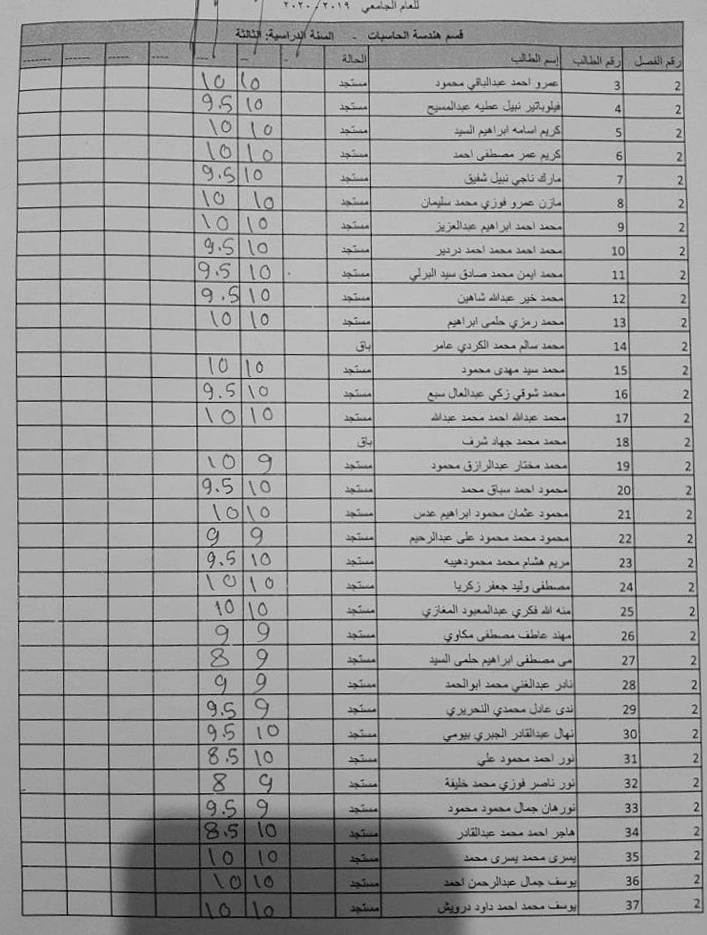 للعام الجامعي ٢٠١٩ - ٢٠٢٠
قسم هندسة الحاسبات - السنة الدراسية: الثالثة
رقم الفصل رقم الطالب إسم الطالب الحالة
2 3 عمرو احمد عبدالباقي محمود مستجد 10 10
2 4 فيلوباتير نبيل عطيه عبدالمسيح مستجد 10 9.5
2 5 كريم اسامه ابراهيم السيد مستجد 10 10
2 6 كريم عمر مصطفى احمد مستجد 10 10
2 7 مارك ناجي نبيل شفيق مستجد 10 9.5
2 8 مازن عمرو فوزي محمد سليمان مستجد 10 10
2 9 محمد احمد ابراهيم عبدالعزيز مستجد 10 10
2 10 محمد احمد محمد احمد دردير مستجد 10 9.5
2 11 محمد ايمن محمد صادق سيد البرلي مستجد 10 9.5
2 12 محمد خير عبدالله شاهين مستجد 10 9.5
2 13 محمد رمزي حلمى ابراهيم مستجد 10 10
2 14 محمد سالم محمد الكردي عامر باق
2 15 محمد سيد مهدى محمود مستجد 10 10
2 16 محمد شوقي زكي عبدالعال سبع مستجد 10 9.5
2 17 محمد عبدالله احمد محمد عبدالله مستجد 10 10
2 18 محمد محمد جهاد شرف باق
2 19 محمد مختار عبدالرازق محمود مستجد 9 10
2 20 محمود احمد سباق محمد مستجد 10 9.5
2 21 محمود عثمان محمود ابراهيم عدس مستجد 10 10
2 22 محمود محمد محمود على عبدالرحيم مستجد 9 9
2 23 مريم هشام محمد محمودهيبه مستجد 10 9.5
2 24 مصطفى وليد جعفر زكريا مستجد 10 10
2 25 منه الله فكري عبدالمعبود المغازي مستجد 10 10
2 26 مهند عاطف مصطفى مكاوي مستجد 9 9
2 27 مى مصطفى ابراهيم حلمى السيد مستجد 9 8
2 28 نادر عبدالغني محمد ابوالحمد مستجد 9 9
2 29 ندى عادل محمدي النحريري مستجد 9 9.5
2 30 نهال عبدالقادر الجبري بيومي مستجد 10 9.5
2 31 نور احمد محمود علي مستجد 10 8.5
2 32 نور ناصر فوزي محمد خليفة مستجد 9 8
2 33 نورهان جمال محمود محمود مستجد 9 9.5
2 34 هاجر احمد محمد عبدالقادر مستجد 10 8.5
2 35 يسرى محمد يسرى محمد مستجد 10 10
2 36 يوسف جمال عبدالرحمن احمد مستجد 10 10
2 37 يوسف محمد احمد داود درويش مستجد 10 10